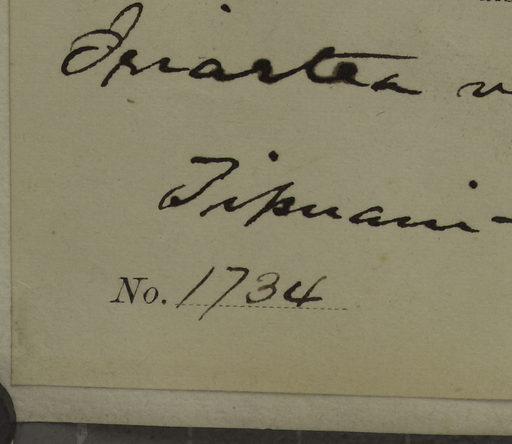 Iriartea
Tipuani-
No. 1734